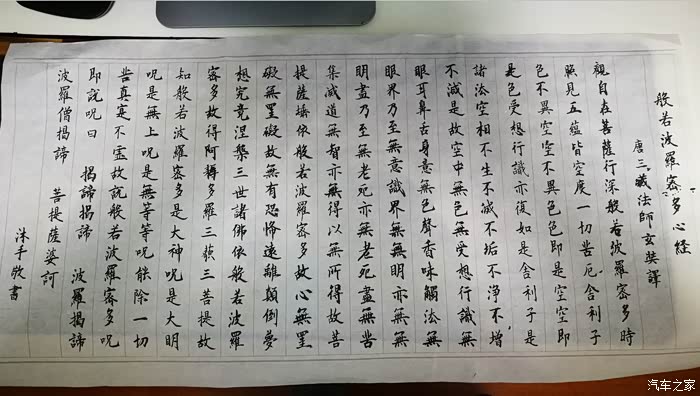 般若波羅密多心経
唐三藏法師玄奘譯
觀自在菩薩行深般若波羅密多時
照見五蘊皆空度一切苦厄舍利子
色不異空空不異色色即是空空即
是色受想行識亦復如是舍利子是
諸法空相不生不滅不垢不淨不增
不減是故空中無色無受想行識無
眼耳鼻舌身意無色聲香味觸法無
眼界乃至無意識界無無明亦無無
明盡乃至無老死亦無老死盡無苦
集滅道無智亦無得以無所得故菩
提薩埵依般若波羅密多故心無罣
礙無罣礙故無有恐怖遠離顛倒夢
想究竟涅槃三世諸佛依般若波羅
密多故得阿耨多羅三藐三菩提故
知般若波羅密多是大神呪是大明
呪是無上呪是無等等呪能除一切
苦真實不虛故說般若波羅密多呪
即說呪曰 揭諦揭諦 波羅揭諦
波羅僧揭諦 菩提薩婆訶
沐手敬書
汽车之家